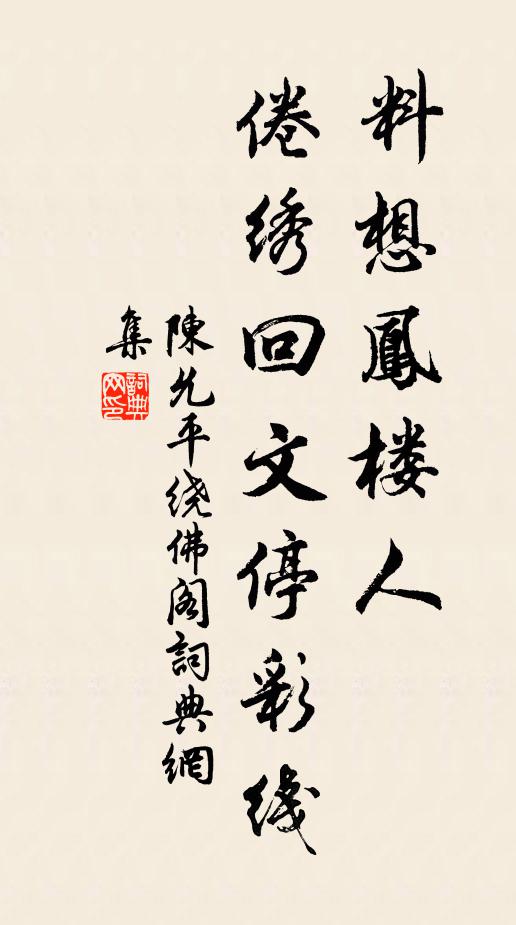 料想鳳楼人
倦绣回文停彩线
陳允平绕佛阁詞典網
集
詞典网印